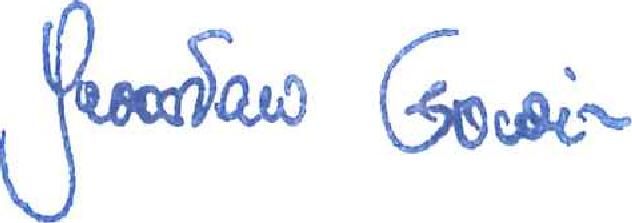 Jarosław Gowin